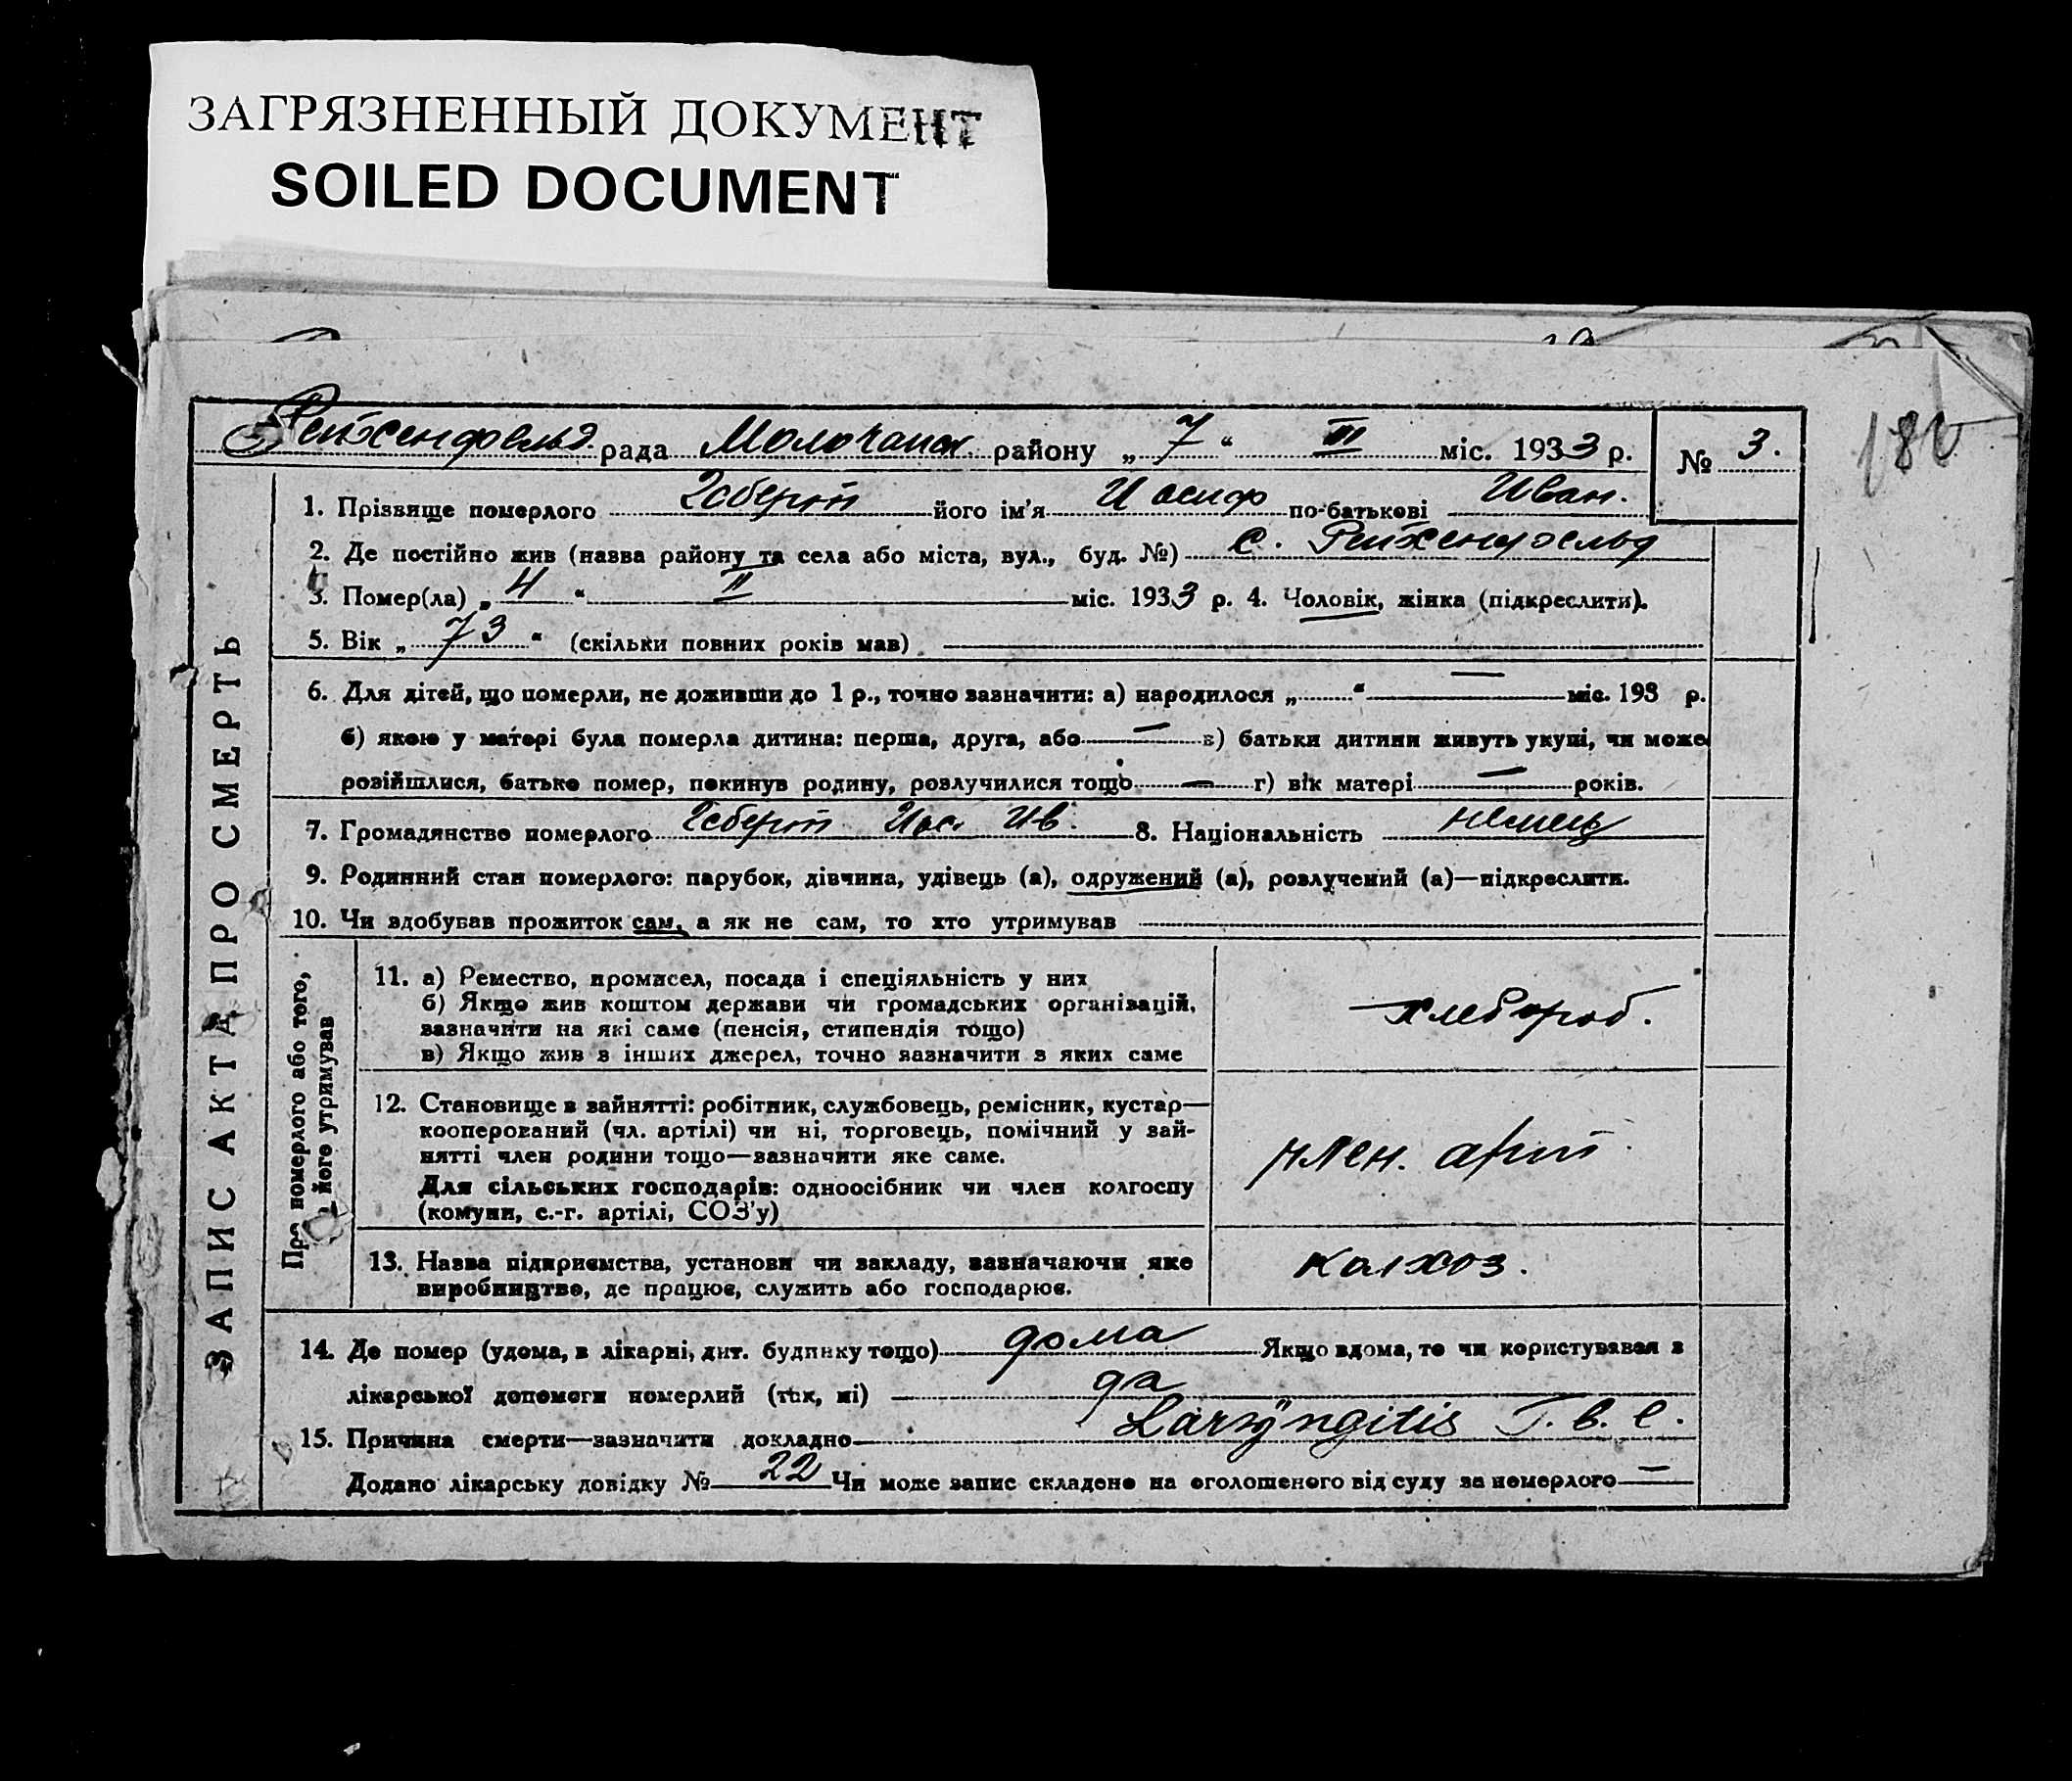 ЗАГРЯЗНЕННЫЙ ДОКУМЕНТ
SOILED DOCUMENT
180
Рейхенфельд рада Молочанск району „ 7 “ III міс. 1933 р. № 3.
ЗАПИС АКТА ПРО СМЕРТЬ
1. Прізвище померлого Геберт його ім'я Иосиф по-батькові Иван.
2. Де постійно жив (назва району та села або міста, вул., буд. №) с. Рейхенфельд
3. Помер(ла) „ 4 “ II міс. 1933 р. 4. Чоловік, жінка (підкреслити).
5. Вік „ 73 “ (скільки повних років мав)
6. Для дітей, що померли, не доживши до 1 р., точно зазначити: а) народилося „ “ — міс. 193 р.
б) якою у матері була померла дитина: перша, друга, або — в) батьки дитини живуть укупі, чи може
розійшлися, батько помер, покинув родину, розлучилися тощо — г) вік матері — років.
7. Громадянство померлого Геберт Иос. Ив. 8. Національність немец
9. Родинний стан померлого: парубок, дівчина, удівець (а), одружений (а), розлучений (а)—підкреслити.
10. Чи здобував прожиток сам, а як не сам, то хто утримував
Про померлого або того, його утримував
11. а) Ремество, промисел, посада і спеціяльність у них
б) Якщо жив коштом держави чи громадських організацій,
зазначити на які саме (пенсія, стипендія тощо)
в) Якщо жив з інших джерел, точно зазначити з яких саме
хлебороб.
12. Становище в зайнятті: робітник, службовець, ремісник, кустар—
кооперований (чл. артілі) чи ні, торговець, помічний у зай-
нятті член родини тощо—зазначити яке саме.
Для сільських господарів: одноосібник чи член колгоспу
(комуни, с.-г. артілі, СОЗ'у)
член. арт.
13. Назва підприємства, установи чи закладу, зазначаючи яке
виробництво, де працює, служить або господарює.
колхоз.
14. Де помер (удома, в лікарні, дит. будинку тощо) дома Якщо вдома, то чи користувався з
лікарської допомоги померлий (так, ні) да
15. Причина смерти—зазначити докладно Laryngitis T. b. c.
Додано лікарську довідку № 22 Чи може запис складено на оголошеного від суду за померлого —